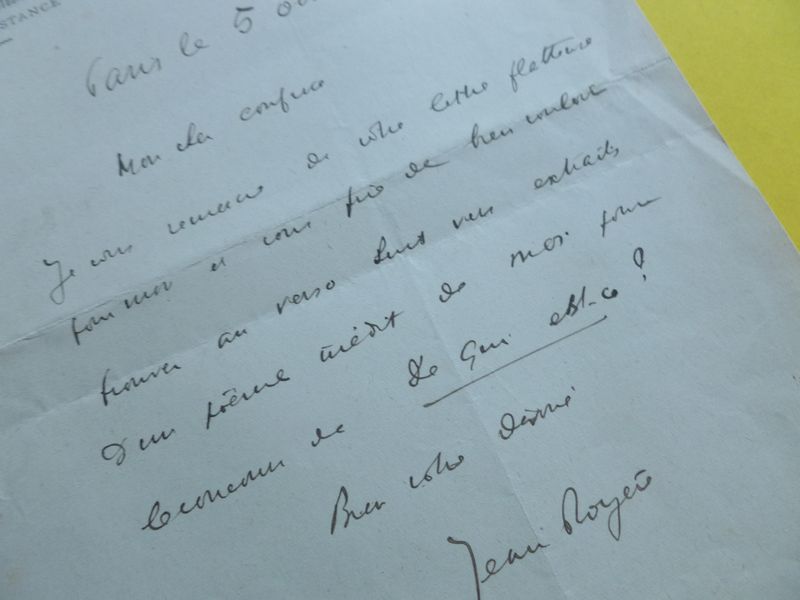 STANCE
Paris le 5
Mon cher confrère
Je vous remercie de votre lettre flatteuse
pour moi et vous prie de bien vouloir
trouver au verso huit vers extraits
d'un poème inédit de moi pour
le concours de De qui est-ce ?
Bien votre dévoué
Jean